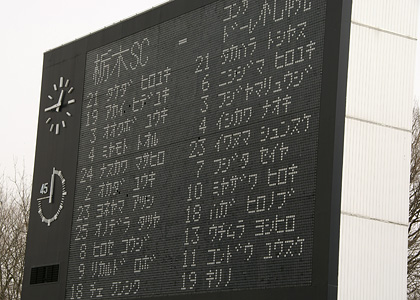 栃木SC - コンサドーレ札幌
21 タケダ ヒロユキ
19 アカイ ヒデユキ
3 オオクボ ユウキ
4 ミヤモト トオル
24 ナスカワ マサヒロ
2 オカダ ユウキ
23 ヨネヤマ アツシ
25 サノ タツヤ
8 ヒロセ コウジ
9 リカルド ロボ
18 チェ クンシク
21 タカハラ トシヤス
6 ニシジマ ヒロユキ
3 フジヤマリュウジ
4 イシカワ ナオキ
23 イワヌマ シュンスケ
7 フジタ セイヤ
10 ミヤザワ ヒロキ
18 ハガ ヒロノブ
13 ウチムラ ヨシヒロ
11 コンドウ ユウスケ
19 キリノ
45